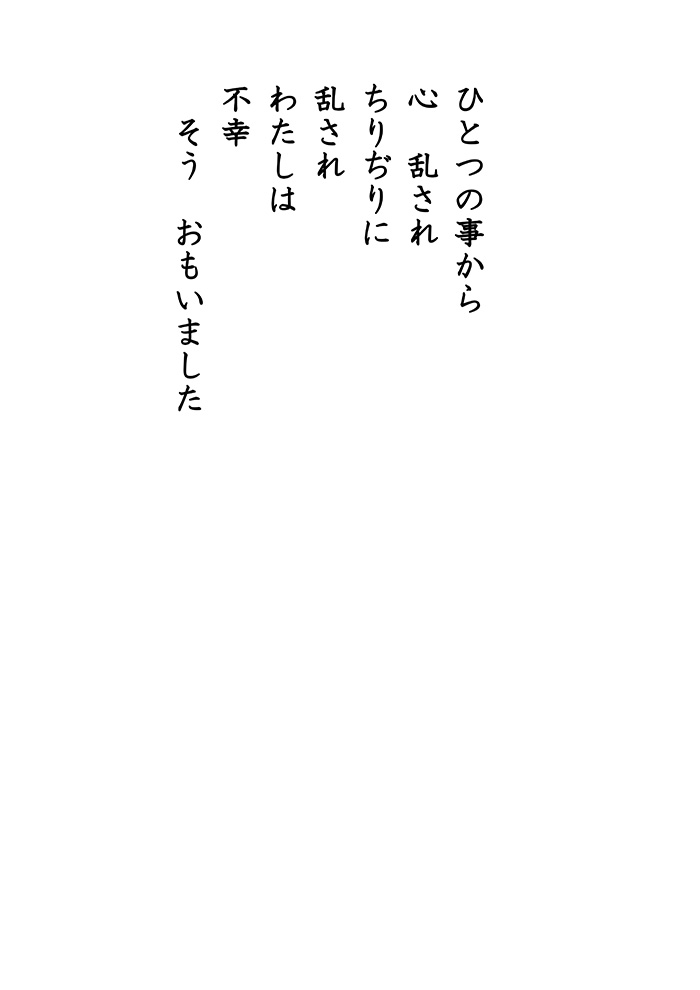 ひとつの事から
心　乱され
ちりぢりに
乱され
わたしは
不幸
　そう　おもいました